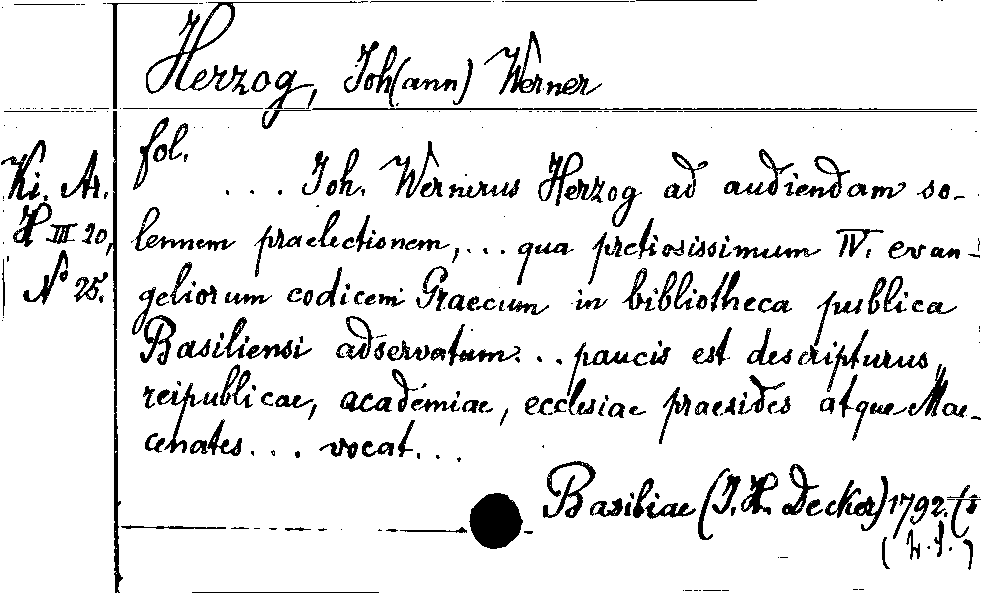 Herzog, Joh(ann) Werner
fol.
Ki. Ar.
H III 20,
No 25.
... Joh. Wernerus Herzog ad audiendam so-
lennem praelectionem,... qua pretiosissimum IV. evan-
geliorum codicem Graecum in bibliotheca publica
Basiliensi adservatum... paucis est descripturus,
reipublicae, academiae, ecclesiae praesides atque Mae-
cenates... vocat...
Basiliae (J. H. Decker) 1792.